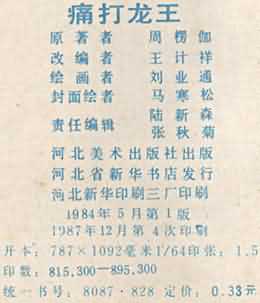 痛打龙王
原著者 周楞伽
改编者 王计祥
绘画者 刘业通
封面绘者 马寒松
责任编辑 陆新森
张秋菊
河北美术出版社出版
河北省新华书店发行
河北新华印刷三厂印刷
1984年5月第1版
1987年12月第4次印刷
开本：787×1092毫米1/64印张：1.5
印数：815,300—895,300
统一书号：8087·828 定价：0.33元